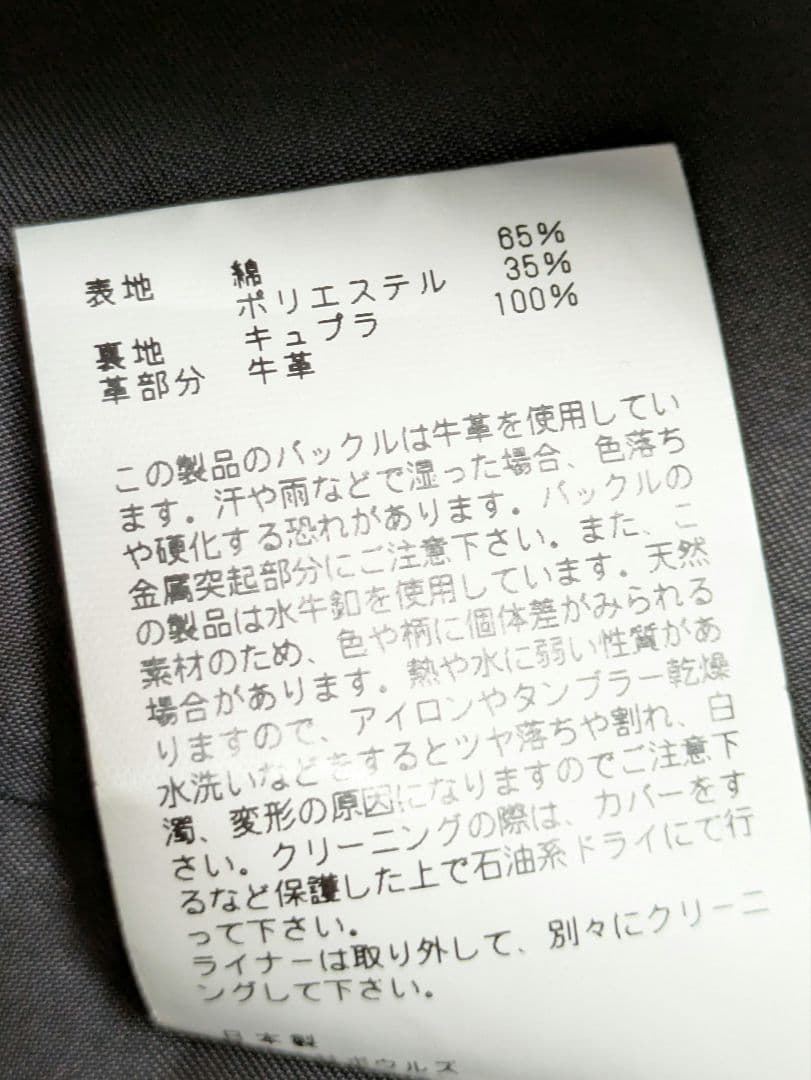 表地 綿 65%
ポリエステル 35%
裏地 キュプラ 100%
革部分 牛革
この製品のバックルは牛革を使用してい
ます。汗や雨などで湿った場合、色落ち
や硬化する恐れがあります。バックルの
金属突起部分にご注意下さい。また、こ
の製品は水牛釦を使用しています。天然
素材のため、色や柄に個体差がみられる
場合があります。熱や水に弱い性質があ
りますので、アイロンやタンブラー乾燥
水洗いなどをするとツヤ落ちや割れ、白
濁、変形の原因になりますのでご注意下
さい。クリーニングの際は、カバーをす
るなど保護した上で石油系ドライにて行
って下さい。
ライナーは取り外して、別々にクリーニ
ングして下さい。
日本製